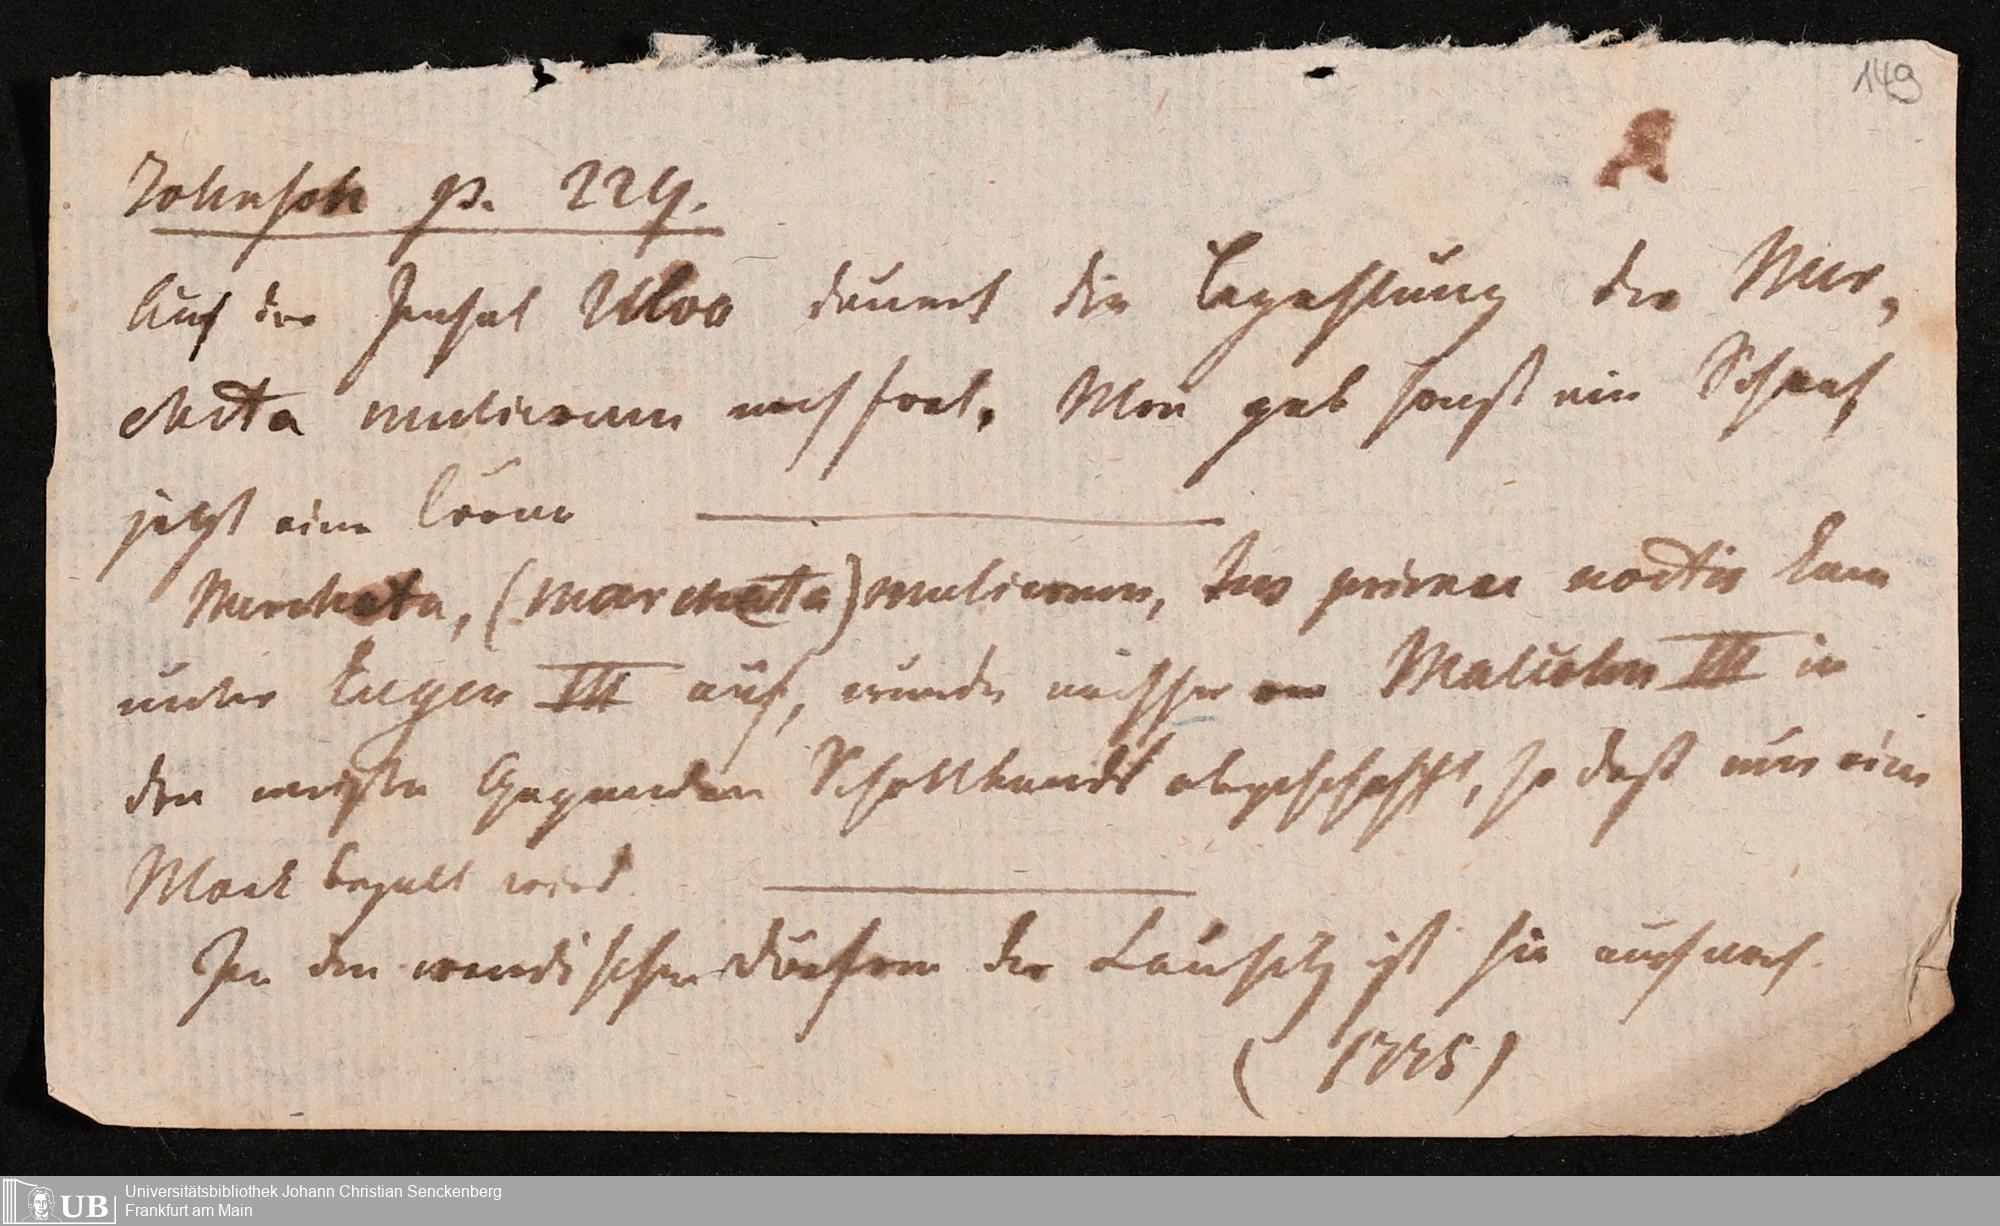 149
Johnson p. 229.
Auf der Insel Ulva dauert die Bezahlung der Mer,
cheta mulierum noch fort. Man gab sonst ein Schaaf,
jetzt eine Crone
Mercheta, (marcheta) mulierum, Jus primae noctis kam
unter Eugen III auf, wurde nachher von Malcolm III in
den meisten Gegenden Schottlands abgeschafft, so daß nur eine
Mark bezalt wird.
In den wendischen Dörfern der Lausitz ist sie auch noch.
(1775)
UB
Universitätsbibliothek Johann Christian Senckenberg
Frankfurt am Main